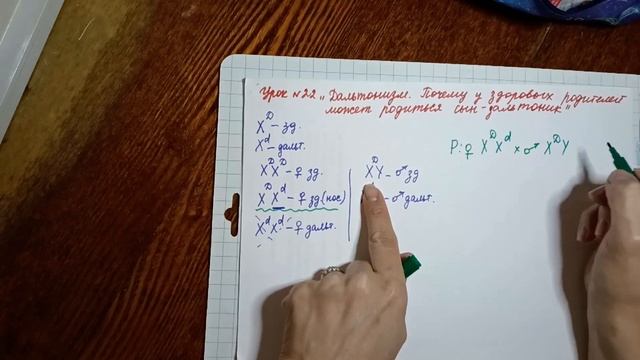 Урок №22 „Дальтонизм. Почему у здоровых родителей
может родиться сын-дальтоник"
X^D – зд.
X^d – дальт.
X^D X^D – ♀ зд.
X^D X^d – ♀ зд (нос)
X^d X^d – ♀ дальт.
X^D Y – ♂ зд
– ♂ дальт.
P: ♀ X^D X^d × ♂ X^D Y